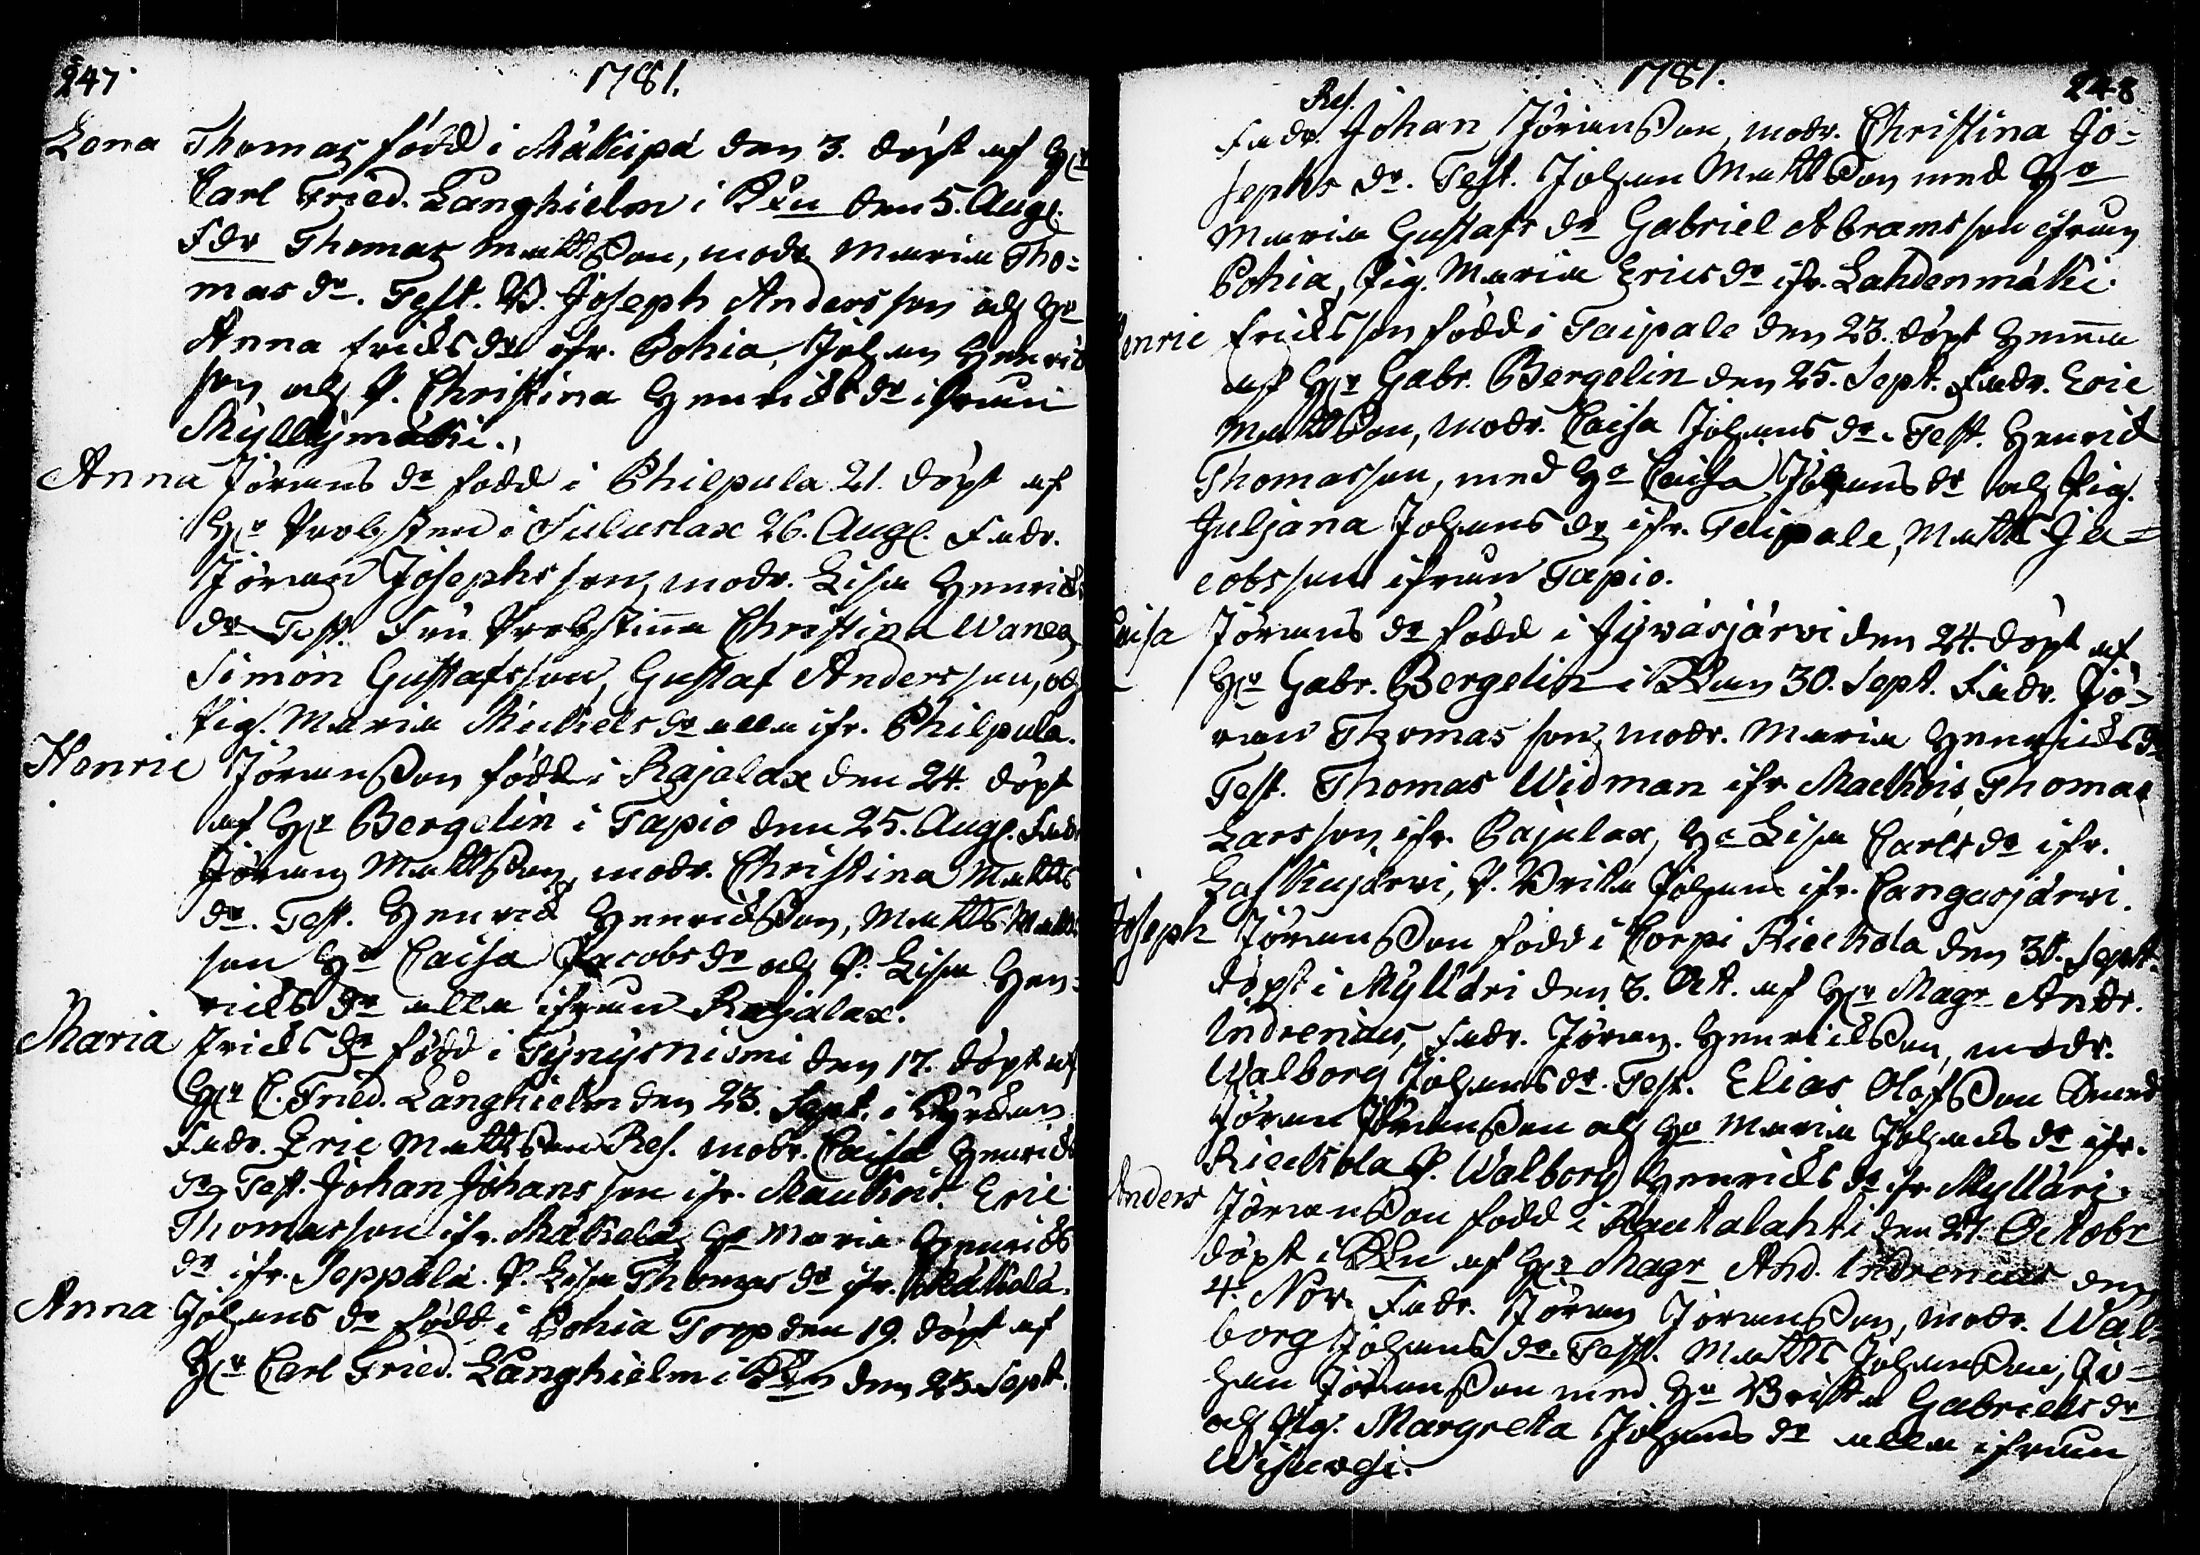 247
1781.
Lena Thomas född i Mäkipä den 3. döpt af Hr
Carl Fried. Långhielm i Kn den 5. Aug.
Fdr Thomas Mattsson, modr Maria Tho-
mas dr. Test. B. Joseph Andersson och Ho
Anna Ericks dr ifr. Pohia, Johan Henric
son och P. Christina Henrics dr ifrån
Myllymäki.
Anna Jörans dr född i Philpula 21. döpt af
Hr Probsten i Suluslax 26. Aug. Fadr.
Jöran Josephsson, modr. Lisa Henrics
dr Test. Fru Probstinna Christina
Simon Gustafsson, Gustaf Andersson, och
Pig. Maria Mickels dr alla ifr. Philpula.
Henric Jöransson född i Rajalax den 24. döpt
af Hr Bergelin i Tapio den 25. Aug. Fadr
Jöran Mattsson, modr. Christina Matts
dr. Test. Henric Henricsson, Matts Matts
son Ho Caisa Jacobs dr och P. Lisa Hen-
rics dr alla ifrån Rajalax.
Maria Erics dr född i Tynysniemi den 17. döpt af
Hr C. Fried. Långhielm den 23. Sept. i Kyrckan
Fadr. Eric Mattsson Res. modr. Caisa Henrics
dr Test. Johan Johansson ifr. Mauckois. Eric
Thomasson ifr. Mäkelä, Ho Maria Henrics
dr ifr. Seppälä. P. Lisa Thomas dr ifr. Mäkelä.
Anna Johans dr född i Pohia Torp den 19. döpt af
Hr Carl Fried. Långhielm i Kn den 23. Sept.
1781.
248
Res.
Fadr. Johan Jöransson, modr. Christina Jo-
sephs dr. Test. Johan Mattsson med Ho
Maria Gustafs dr Gabriel Abramsson ifrån
Pohia, Pig. Maria Erics dr ifr. Lahdenmäki.
Henric Ericksson född i Taipale den 23. döpt hemma
af Hr Gabr. Bergelin den 25. Sept. Fadr. Eric
Mattsson, modr. Caisa Johans dr. Test. Henric
Thomasson, med Ho Caisa Johans dr och Pig.
Juljana Johans dr ifr. Taipale, Matts Ja-
cobsson ifrån Tapio.
Caisa Jörans dr född i Jyväsjärvi den 24. döpt af
Hr Gabr. Bergelin i Kkan 30. Sept. Fadr. Jö-
ran Thomasson, modr. Maria Henrics dr
Test. Thomas Widman ifr Mackois, Thomas
Larsson, ifr. Rajalax, Ho Lisa Carls dr ifr.
Laskiajärvi, P. Brita Johans ifr. Cangasjärvi.
Joseph Jöransson född i Corpi Rieckola den 30. Sept.
döpt i Mylläri den 3. Oct. af Hr Magr Andr.
Indrenius, Fadr. Jöran. Henricksson, modr.
Walborg Johans dr. Test. Elias Olofsson
Jöran Jöransson och Ho Maria Johans dr ifr.
Rieckola P. Walborg Henrics dr ifr Mylläri.
Anders Jöransson född i Rautalahti den 27. Octobr
döpt i Kkn af Hr Magr And. Indrenius den
4. Nov. Fadr. Jöran Jöransson, modr. Wal-
borg Johans dr. Test. Matts Johansson, Jo-
han Jöransson med Ho Britta Gabriels dr
och Pig. Margreta Johans dr alla ifrån